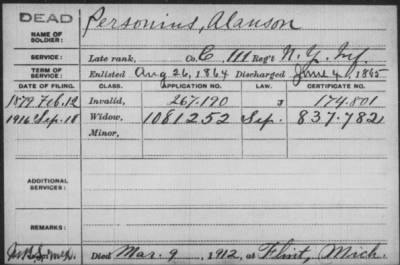 DEAD
NAME OF SOLDIER: Personius, Alanson
SERVICE: Late rank, Co. C, 111 Reg't N.Y. Inf.
TERM OF SERVICE: Enlisted Aug 26, 1864 Discharged June 4, 1865
DATE OF FILING. CLASS. APPLICATION NO. LAW. CERTIFICATE NO.
1879 Feb. 12 Invalid, 267.190 174.801
1916 Sep. 18 Widow, 1081252 Sep. 837.782
Minor,
ADDITIONAL SERVICES:
REMARKS:
Died Mar. 9, 1912, at Flint, Mich.